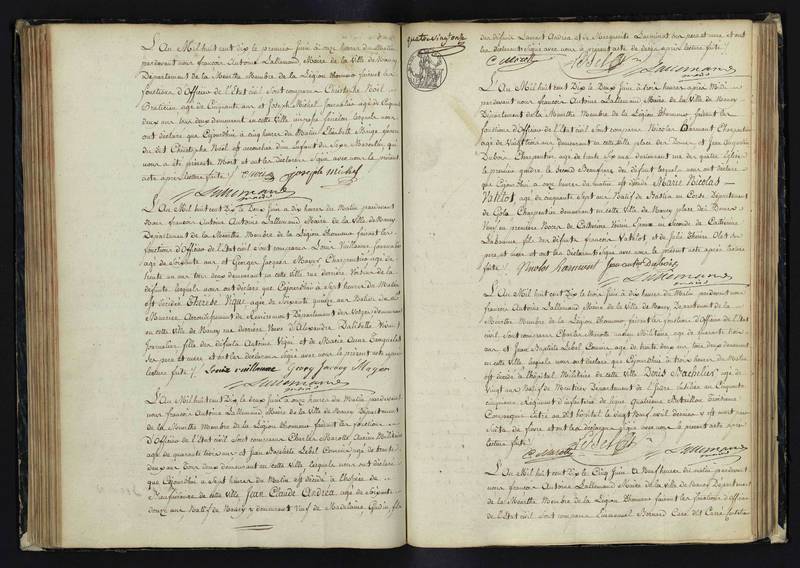 L'An Mil huit cent Dix le premier Juin à onze heures du Matin
pardevant nous françois Antoine Lallemand, Maire de la Ville de Nancy
Département de la Meurthe Membre de la Légion d'honneur faisant les
fonctions d'Officier de l'Etat civil sont comparus Christophe Noël
Praticien agé de Cinquante ans et Joseph Michel Journalier agé de Cinquante
deux ans tous deux demeurant en cette Ville lesquels nous
ont déclaré que Cejourd'hui à cinq heures du Matin Elisabeth
du dit Christophe Noël est accouchée d'un Enfant du Sexe Masculin qui
nous a été présenté Mort et ont les déclarans Signé avec nous le présent
acte après lecture faite ./.
Joseph michel
Lallemand
maire
L'An Mil huit cent Dix le Deux Juin à dix heures du Matin pardevant
nous françois Antoine Lallemand Maire de la Ville de Nancy
Département de la Meurthe Membre de la Légion d'honneur faisant les
fonctions d'Officier de l'Etat civil sont comparus Louis Vuillaume Journalier
agé de Soixante ans et Georges Jacques Mayer Charpentier agé de
trente un ans tous deux demeurant en cette Ville rue derrière Voisins de la
défunte lesquels nous ont déclaré que Cejourd'hui à Sept heures du Matin
est décédée Thérèse Vique agée de Soixante quinze ans Native de
Maurice Arrondissement de Remiremont Département des Vosges demeurant
en cette Ville de Nancy rue derrière Veuve d'Alexandre Vivant
Journalier fille des défunts Antoine Viqué et de Marie Anne
Ses père et mère et ont les déclarans signé avec nous le présent acte après
lecture faite ./. Louis vuillaume Georg Jacoby Mayer
Lallemand
maire
L'An Mil huit cent Dix le Deux Juin à onze heures du Matin pardevant
nous françois Antoine Lallemand Maire de la Ville de Nancy Département
de la Meurthe Membre de la Légion d'honneur faisant les fonctions
D'Officier de l'Etat civil Sont comparus Charles Marotte Ancien Militaire
agé de quarante trois ans et Jean Baptiste Lebel Commis agé de trente
deux ans tous deux demeurant en cette Ville, lesquels nous ont déclaré
que Cejourd'hui à Sept heures du Matin est décédé à l'hospice de
de cette Ville Jean Claude Andréa, agé de Soixante
douze ans Natif de Nancy y demeurant Veuf de Madelaine Gudin, fils
quatre vingt onze
des défunts Laurent Andréa et de Marguerite ses père et mere et ont
les déclarans Signé avec nous le présent acte de décès après lecture faite ./.
C Marotte Lebel
Lallemand
maire
L'An Mil huit cent Dix le Deux Juin à trois heures après Midi
pardevant nous françois Antoine Lallemand Maire de la Ville de Nancy
Département de la Meurthe Membre de la Légion d'honneur faisant les
fonctions d'Officier de l'Etat civil Sont comparus Nicolas Charpentier
agé de Vingt trois ans demeurant en cette Ville place des Dames et Jean Augustin
Dubois Charpentier agé de trente Six ans demeurant rue des quatre Eglises
le premier gendre le second Beaufrère du défunt lesquels nous ont déclaré
que Cejourd'hui à onze heures du matin est décédé Marie Nicolas
Vatelot, agé de cinquante Sept ans Natif de Bastia en Corse, Département
de Golo Charpentier demeurant en cette Ville de Nancy place des Dames
Veuf en premières Noces de Catherine Epoux en Seconde de Catherine
fils des défunts françois Vatelot et de Julie Thérèse Ses
père et mère et ont les déclarans signé avec nous le présent acte après lecture
faite ./.
Lallemand
maire
L'An Mil huit cent Dix le trois Juin à dix heures du Matin pardevant nous
françois Antoine Lallemand Maire de la Ville de Nancy Département de la
Meurthe Membre de la Légion d'honneur faisant les fonctions d'Officier de l'Etat
civil, Sont comparus Charles Marotte Ancien Militaire, agé de quarante trois
ans et Jean Baptiste Lebel Commis, agé de trente deux ans, tous deux demeurant
en cette Ville, lesquels nous ont déclaré que Cejourd'hui à trois heures du Matin
est décédé à l'hôpital Militaire de cette Ville Denis Bachelier agé de
Vingt ans Natif de Département de l'Isère fusilier au Cinquante
cinquième Régiment d'infanterie de ligne quatrième Bataillon troisième
Compagnie Entré au dit hôpital le Vingt Neuf avril dernier y est mort par
Suite de fièvre et ont les déclarans signé avec nous le présent acte après
lecture faite ./.
C Marotte Lebel
Lallemand
maire
L'An Mil huit cent Dix le Cinq Juin à Neuf heures du matin pardevant
nous françois Antoine Lallemand Maire de la Ville de Nancy Département
de la Meurthe Membre de la Légion d'honneur faisant les fonctions d'Officier
de l'Etat civil, Sont comparus Emmanuel Bernard Caré dit Carré